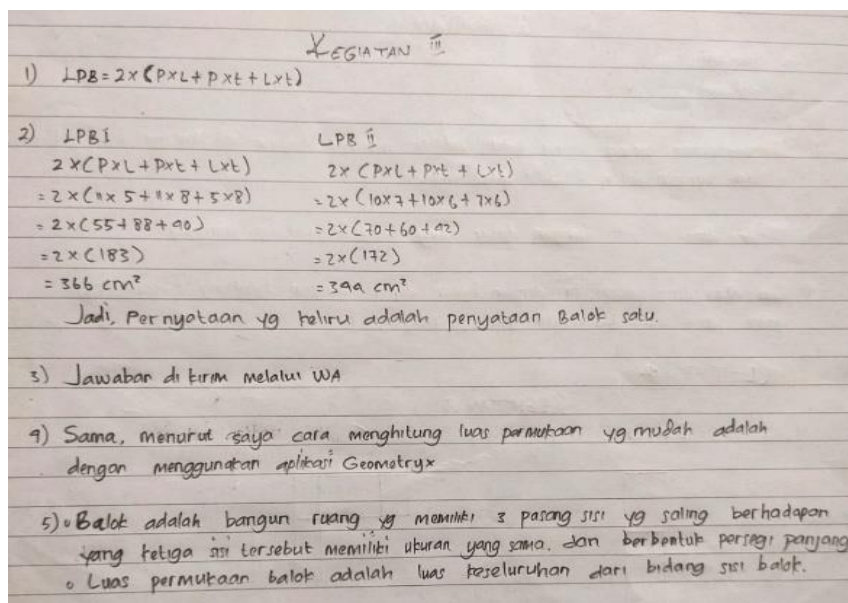 KEGIATAN III
1) LPB = 2x (PxL + Pxt + Lxt)
2) LPB I
2x(PxL + Pxt + Lxt)
= 2x(11x 5 + 11x 8 + 5x8)
= 2x(55+88+40)
= 2x(183)
= 366 cm²
LPB II
2x (PxL + Pxt + Lxt)
= 2x (10x7+10x6+7x6)
= 2x(70+60+42)
= 2x(172)
= 344 cm²
Jadi, Pernyataan yg keliru adalah penyataan Balok satu.
3) Jawaban di kirim melalui WA
4) Sama, menurut saya cara menghitung luas permukaan yg mudah adalah
dengan menggunakan aplikasi Geometryx
5) • Balok adalah bangun ruang yg memiliki 3 pasang sisi yg saling berhadapan
yang ketiga sisi tersebut memiliki ukuran yang sama. dan berbentuk persegi panjang
• Luas permukaan balok adalah luas keseluruhan dari bidang sisi balok.